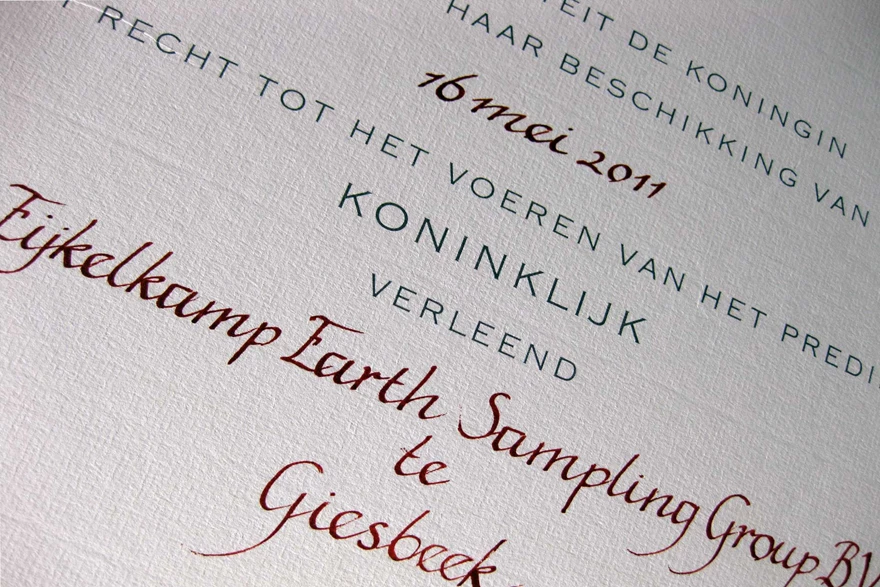 TEIT DE KONINGIN
HAAR BESCHIKKING VAN
16 mei 2011
T RECHT TOT HET VOEREN VAN HET PREDI
KONINKLIJK
VERLEEND
Eijkelkamp Earth Sampling Group BV
te
Giesbeek